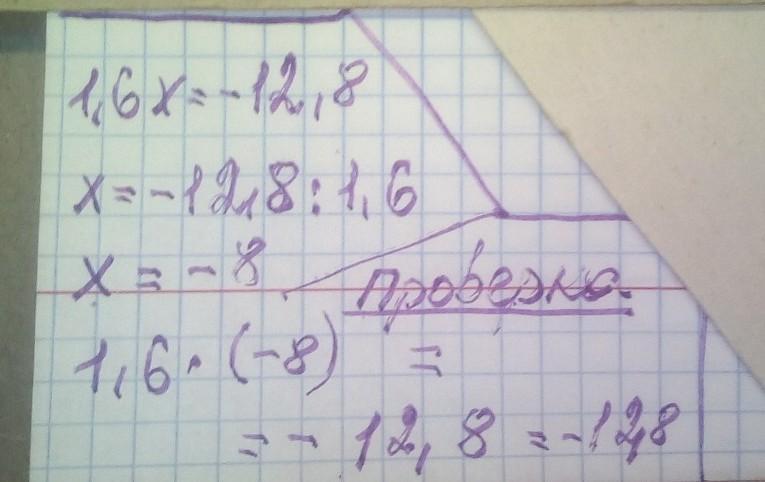 1,6x=-12,8
x=-12,8:1,6
x=-8
Проверка.
1,6·(-8) =
=-12,8=-12,8